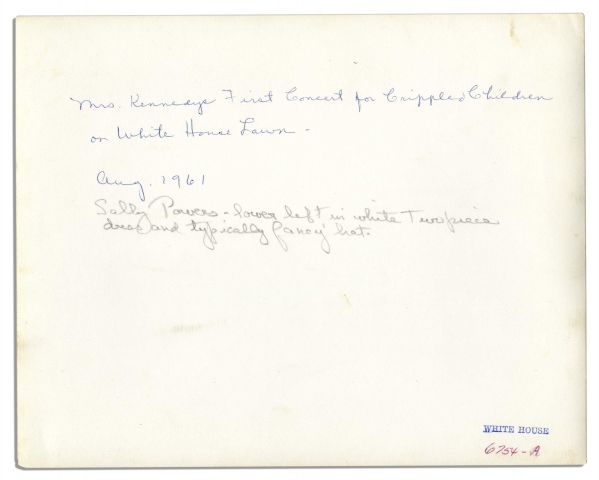 Mrs. Kennedys First Concert for Crippled Children
on White House Lawn -
Aug. 1961
Sally Powers - lower left in white Two piece
dress and typically fancy hat.
WHITE HOUSE
6754-A